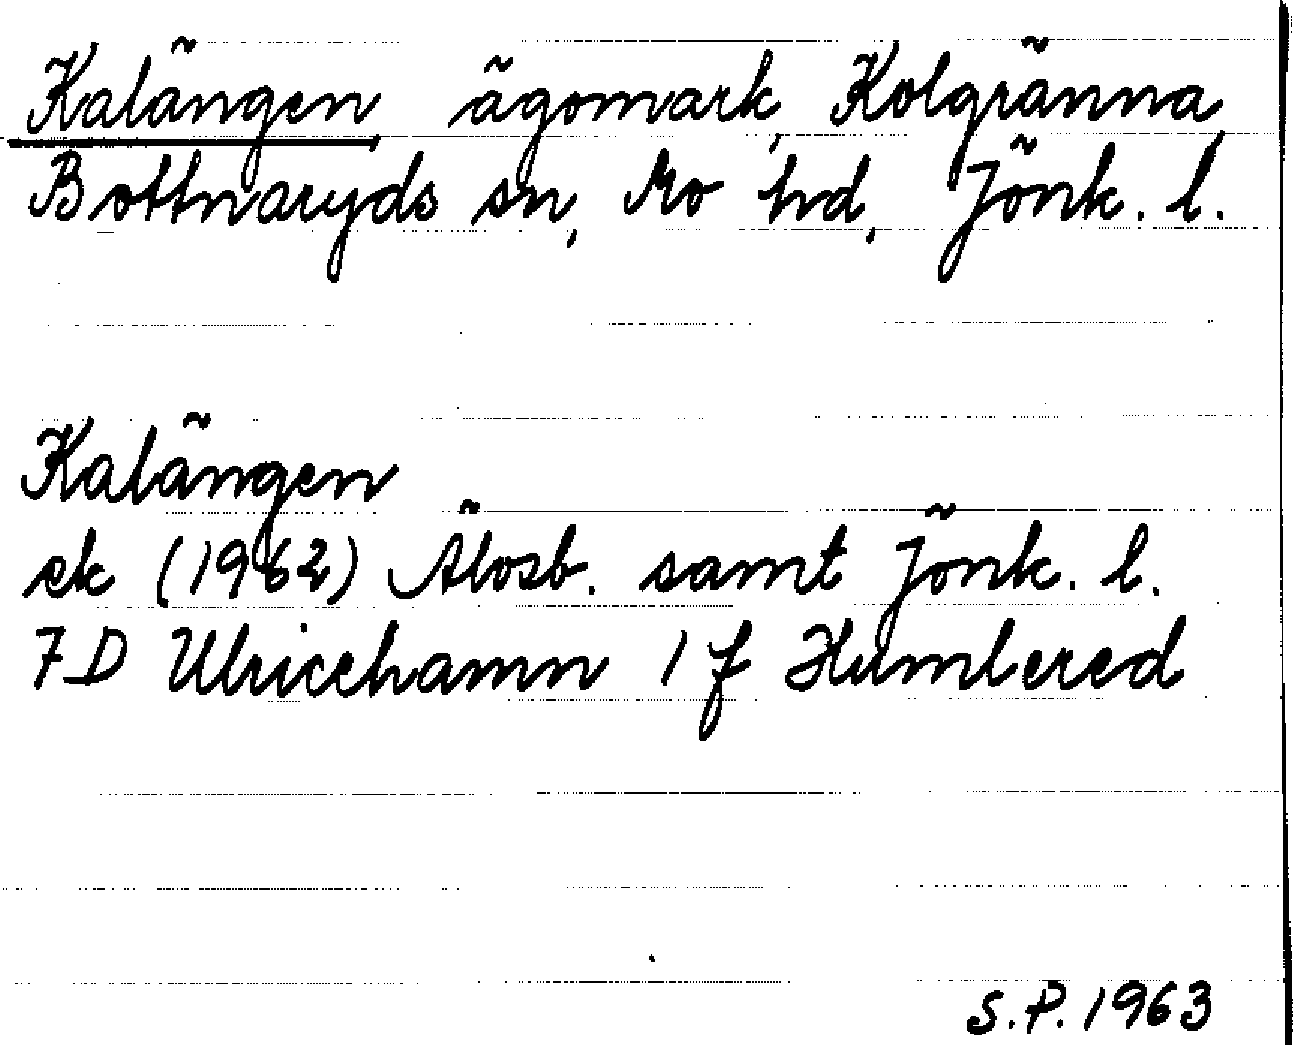 Kalängen, ägomark, Kolgränna,
Bottnaryds sn, Mo hd, Jönk. l.
Kalängen
ek (1962) Älvsb. samt Jönk. l.
7D Ulricehamn 1 f Humlered
S.P. 1963